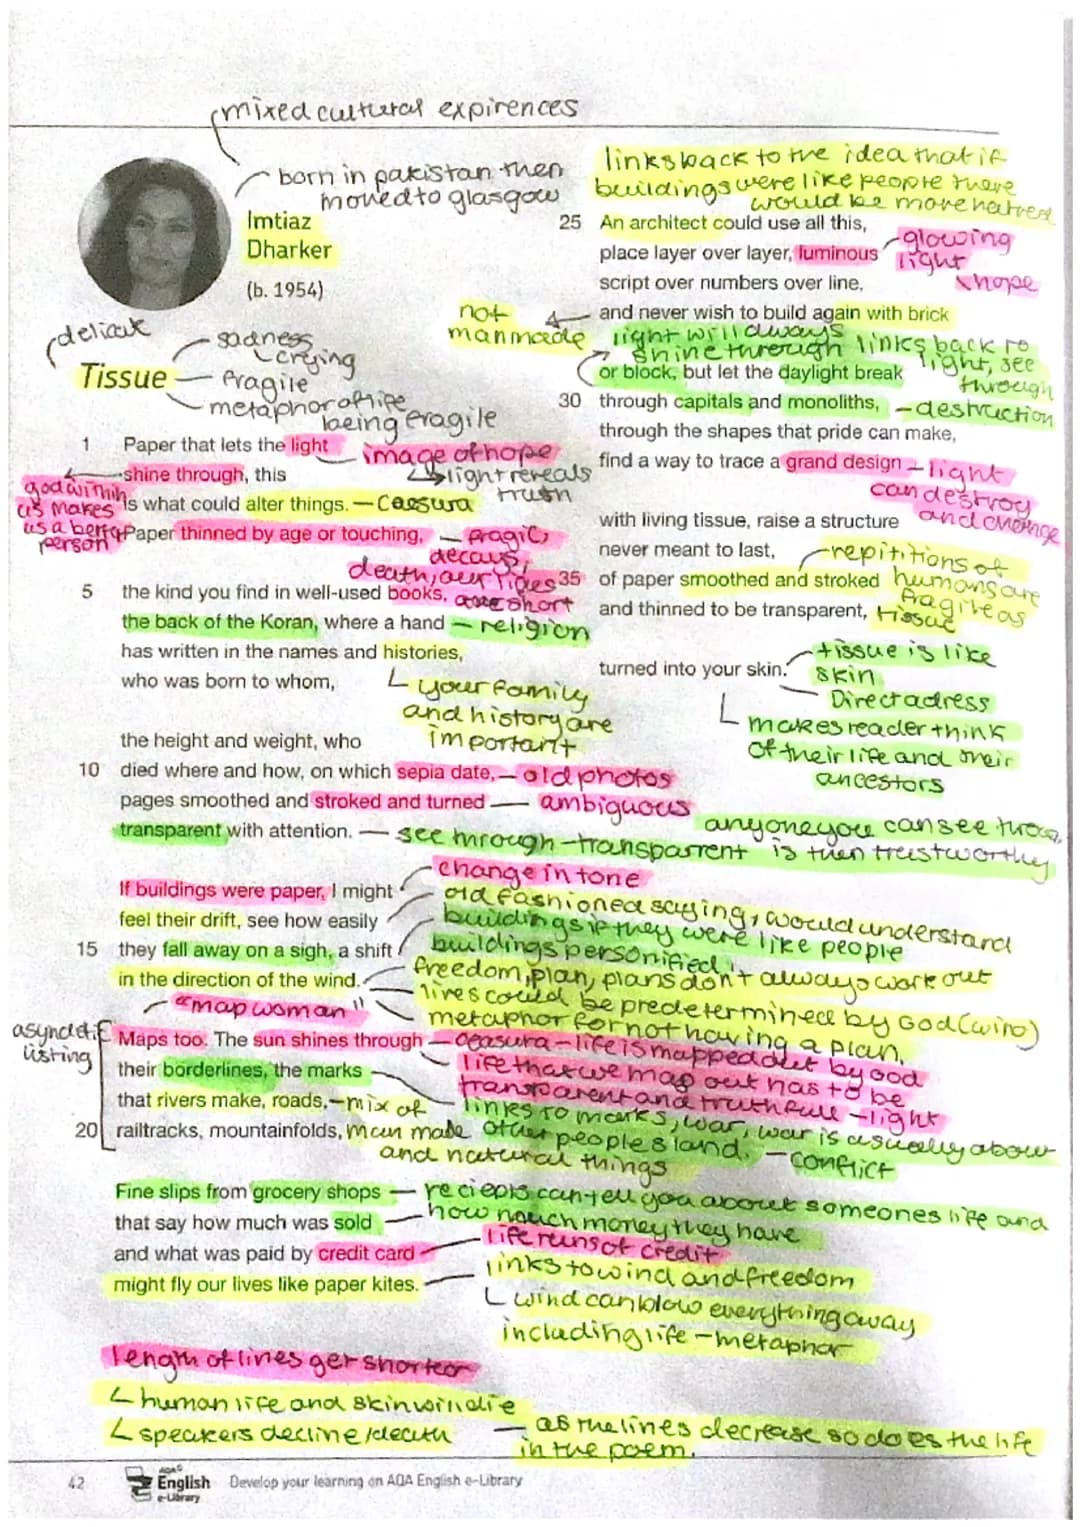 mixed cultural expirences
born in pakistan then
moved to glasgow
Imtiaz
Dharker
(b. 1954)
delicate
sadness
crying
Tissue
fragile
metaphor of life
being fragile
1 Paper that lets the light
image of hope
shine through, this
light reveals
truth
god within
us makes
us a better
person
is what could alter things.
Caesura
Paper thinned by age or touching,
fragile,
decays,
death, our lives
are short
5 the kind you find in well-used books,
the back of the Koran, where a hand
religion
has written in the names and histories,
who was born to whom,
your family
and history are
important
the height and weight, who
10 died where and how, on which sepia date,
old photos
pages smoothed and stroked and turned
ambiguous
transparent with attention.
see through - transparrent
anyone you can see throu
is then trustworthy
If buildings were paper, I might
change in tone
feel their drift, see how easily
old fashioned saying, would understand
buildings if they were like people
15 they fall away on a sigh, a shift
buildings personified.
in the direction of the wind.
freedom, plan, plans don't always work out
lives could be predetermined by God (wind)
metaphor for not having a plan.
"map woman"
asyndetic
listing
Maps too. The sun shines through
ceasura - life is mapped out by God
their borderlines, the marks
life that we map out has to be
transparent and truthfull - light
that rivers make, roads,
mix of
links to marks, war, war is usually about
20 railtracks, mountainfolds,
man made
and natural things
other peoples land.
- conflict
Fine slips from grocery shops
reciepts can tell you about someones life and
that say how much was sold
how much money they have
and what was paid by credit card
life runs of credit
might fly our lives like paper kites.
links to wind and freedom
wind can blow everything away
including life - metaphor
length of lines get shorter
human life and skin will die
speakers decline/death
as the lines decrease so does the life
in the poem.
links back to the idea that if
buildings were like people there
would be more hatred
25 An architect could use all this,
place layer over layer, luminous
glowing
light
hope
script over numbers over line,
and never wish to build again with brick
not
manmade
light will always
shine through
links back to
light, see
through
or block, but let the daylight break
30 through capitals and monoliths,
- destruction
through the shapes that pride can make,
find a way to trace a grand design
light
can destroy
and change
with living tissue, raise a structure
never meant to last,
repititions of
humans are
fragile as
tissue
35 of paper smoothed and stroked
and thinned to be transparent,
turned into your skin.
tissue is like
skin
Direct adress
makes reader think
of their life and their
ancestors
42
AQA
English
e-Library
Develop your learning on AQA English e-Library